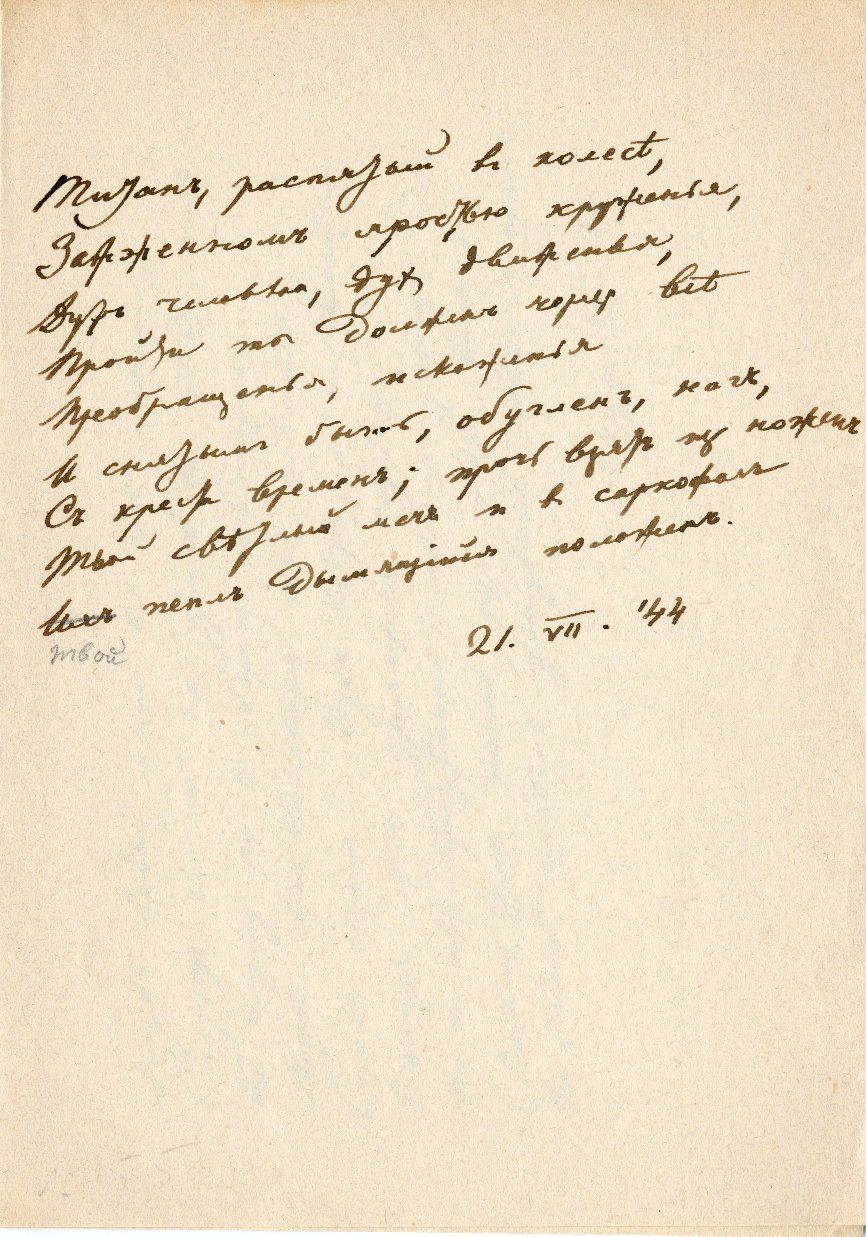 Титанъ, распятый в колесѣ,
Зажженномъ яростью круженья,
Духъ человѣка, духъ движенья,
Пройти ты долженъ через всѣ
Преображенья, искаженья
И снятымъ быть, обугленъ, нагъ,
Съ креста временъ; прочь взятъ из ноженъ
Твой свѣтлый мечъ и в саркофагъ
Ихъ пеплъ дымящійся положенъ.
твой
21. VII. '44